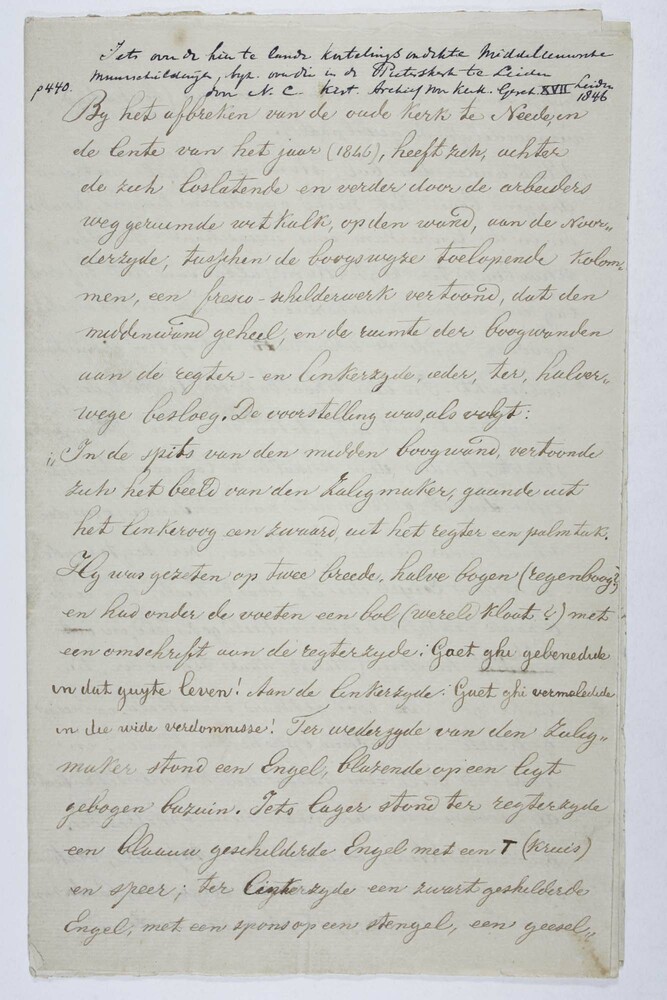 Iets over de hier te lande kortelings ontdekte Middeleeuwsche
muurschilderijen, byz. over die in de Pieterskerk te Leiden
p 440. door N. C. Kist. Archief Voor Kerk. Gesch. XVII Leiden 1846
By het afbreken van de oude kerk te Neede, in
de lente van het jaar (1846), heeft zich, achter
de zich loslatende en verder door de arbeiders
weggeruimde witkalk, op den wand, aan de Noor„
derzyde, tusschen de boogswyze toelopende kolom„
men, een fresco-schilderwerk vertoond, dat den
middenwand geheel, en de ruimte der boogwanden
aan de regter- en linkerzyde, ieder, ter, halver„
wege besloeg. De voorstelling was, als volgt:
„In de spits van den midden boogwand, vertoonde
zich het beeld van den Zaligmaker, gaande uit
het linkeroog een zwaard uit het regter een palmtak.
Hy was gezeten op twee breede, halve bogen (regenboog?)
en had onder de voeten een bol (wereld kloot?) met
een omschrift aan de regterzyde: Gaet ghi gebenedide
in dat guyte leven! Aan de linkerzyde: Gaet ghi vermaledide
in die wide verdomnisse! Ter wederzyde van den Zalig„
maker stond een Engel, blazende op een ligt
gebogen bazuin. Iets lager stond ter regterzyde
een blaauw geschilderde Engel met een T (Kruis)
en speer; ter linkerzyde een zwart geshilderde
Engel, met een spons op een stengel, een geesel„